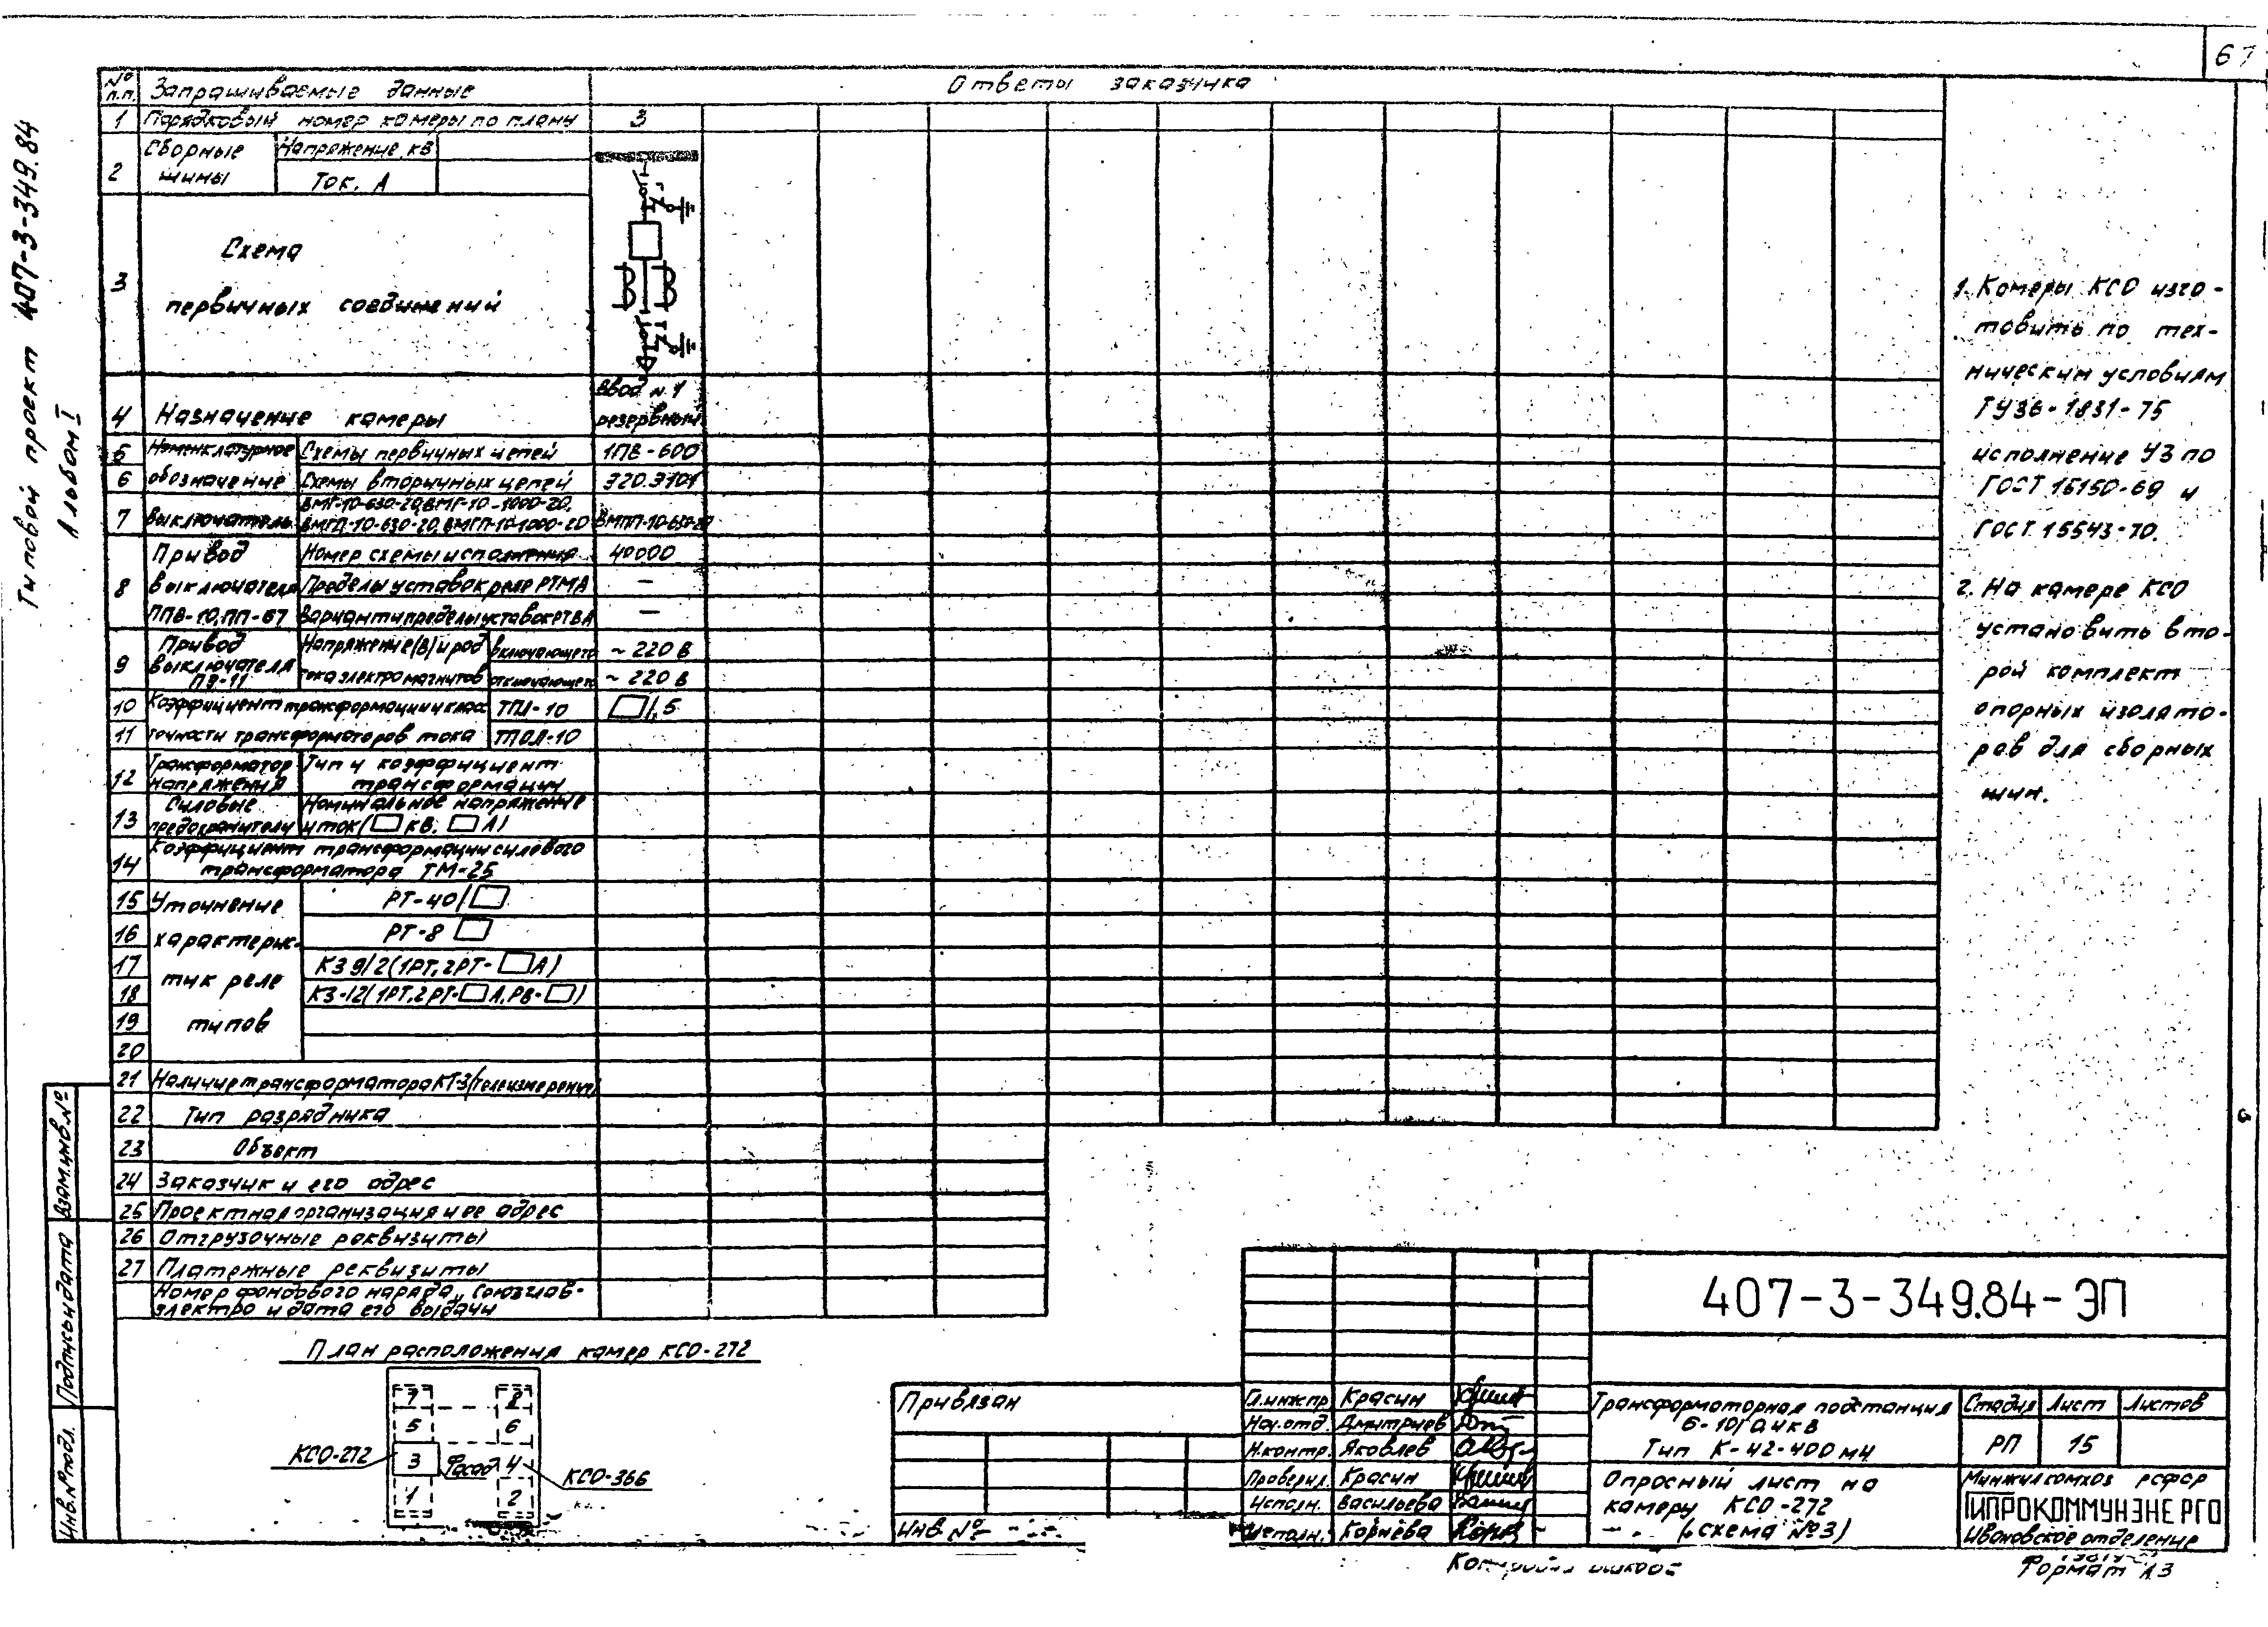 67
Типовой проект 407-3-349.84
Альбом I
№ п.п. Запрашиваемые данные Ответы заказчика
1 Порядковый номер камеры по плану 3
2 Сборные шины Напряжение, кВ
Ток, А
3 Схема
первичных соединений
4 Назначение камеры Ввод №1 резервный
5 Номенклатурное Схемы первичных цепей 1ПВ-600
6 обозначение Схемы вторичных цепей
7 Выключатель ВМГ-10-630-20, ВМГ-10-1000-20,
ВМГП-10-630-20, ВМГП-10-1000-20 ВМПП-10-630-20
8 Привод Номер схемы исполнения 40000
выключателя Пределы уставок реле РТМ А —
ППВ-10, ПП-67 Вариант и пределы уставок РТВ А —
9 Привод выключателя ПЭ-11 Напряжение (В) и род включающего ~220 В
тока электромагнитов отключающего ~220 В
10 Коэффициент трансформации и класс ТПЛ-10 /,5
11 точности трансформаторов тока ТПОЛ-10
12 Трансформатор напряжения Тип и коэффициент
трансформации
13 Силовые предохранители Номинальное напряжение
и ток ( кВ, А)
14 Коэффициент трансформации силового
трансформатора ТМ-25
15 Уточнение РТ-40/
16 характерис- РТ-8
17 тик реле КЗ 9/2 (1РТ, 2РТ- А)
18 КЗ-12 (1РТ, 2РТ- А, РВ- )
19 типов
20
21 Наличие трансформатора КТ-3 (телеизмерение)
22 Тип разрядника
23 Объект
24 Заказчик и его адрес
25 Проектная организация и ее адрес
26 Отгрузочные реквизиты
27 Платежные реквизиты
Номер фондового наряда „Союзглав-
электро и дата его выдачи
1. Камеры КСО изго-
товить по тех-
ническим условиям
ТУ36-1831-75
исполнение У3 по
ГОСТ 15150-69 и
ГОСТ 15543-70.
2. На камере КСО
установить вто-
рой комплект
опорных изолято-
ров для сборных
шин.
План расположения камер КСО-272
7 8
5 6
КСО-272 3 Фасад 4 КСО-366
1 2
Взам.инв.№
Подпись и дата
Инв.№ подл.
Привязан
Инв №
407-3-349.84-ЭП
Гл.инж.пр. Красин
Нач.отд. Дмитриев
Н.контр. Яковлев
Проверил. Красин
Исполн. Васильева
Исполн. Корнева
Трансформаторная подстанция
6-10/0,4 кв
Тип К-42-400 м4
Стадия Лист Листов
РП 15
Опросный лист на
камеру КСО-272
(схема №3)
Минжилкомхоз РСФСР
ГИПРОКОММУНЭНЕРГО
Ивановское отделение
Формат А3